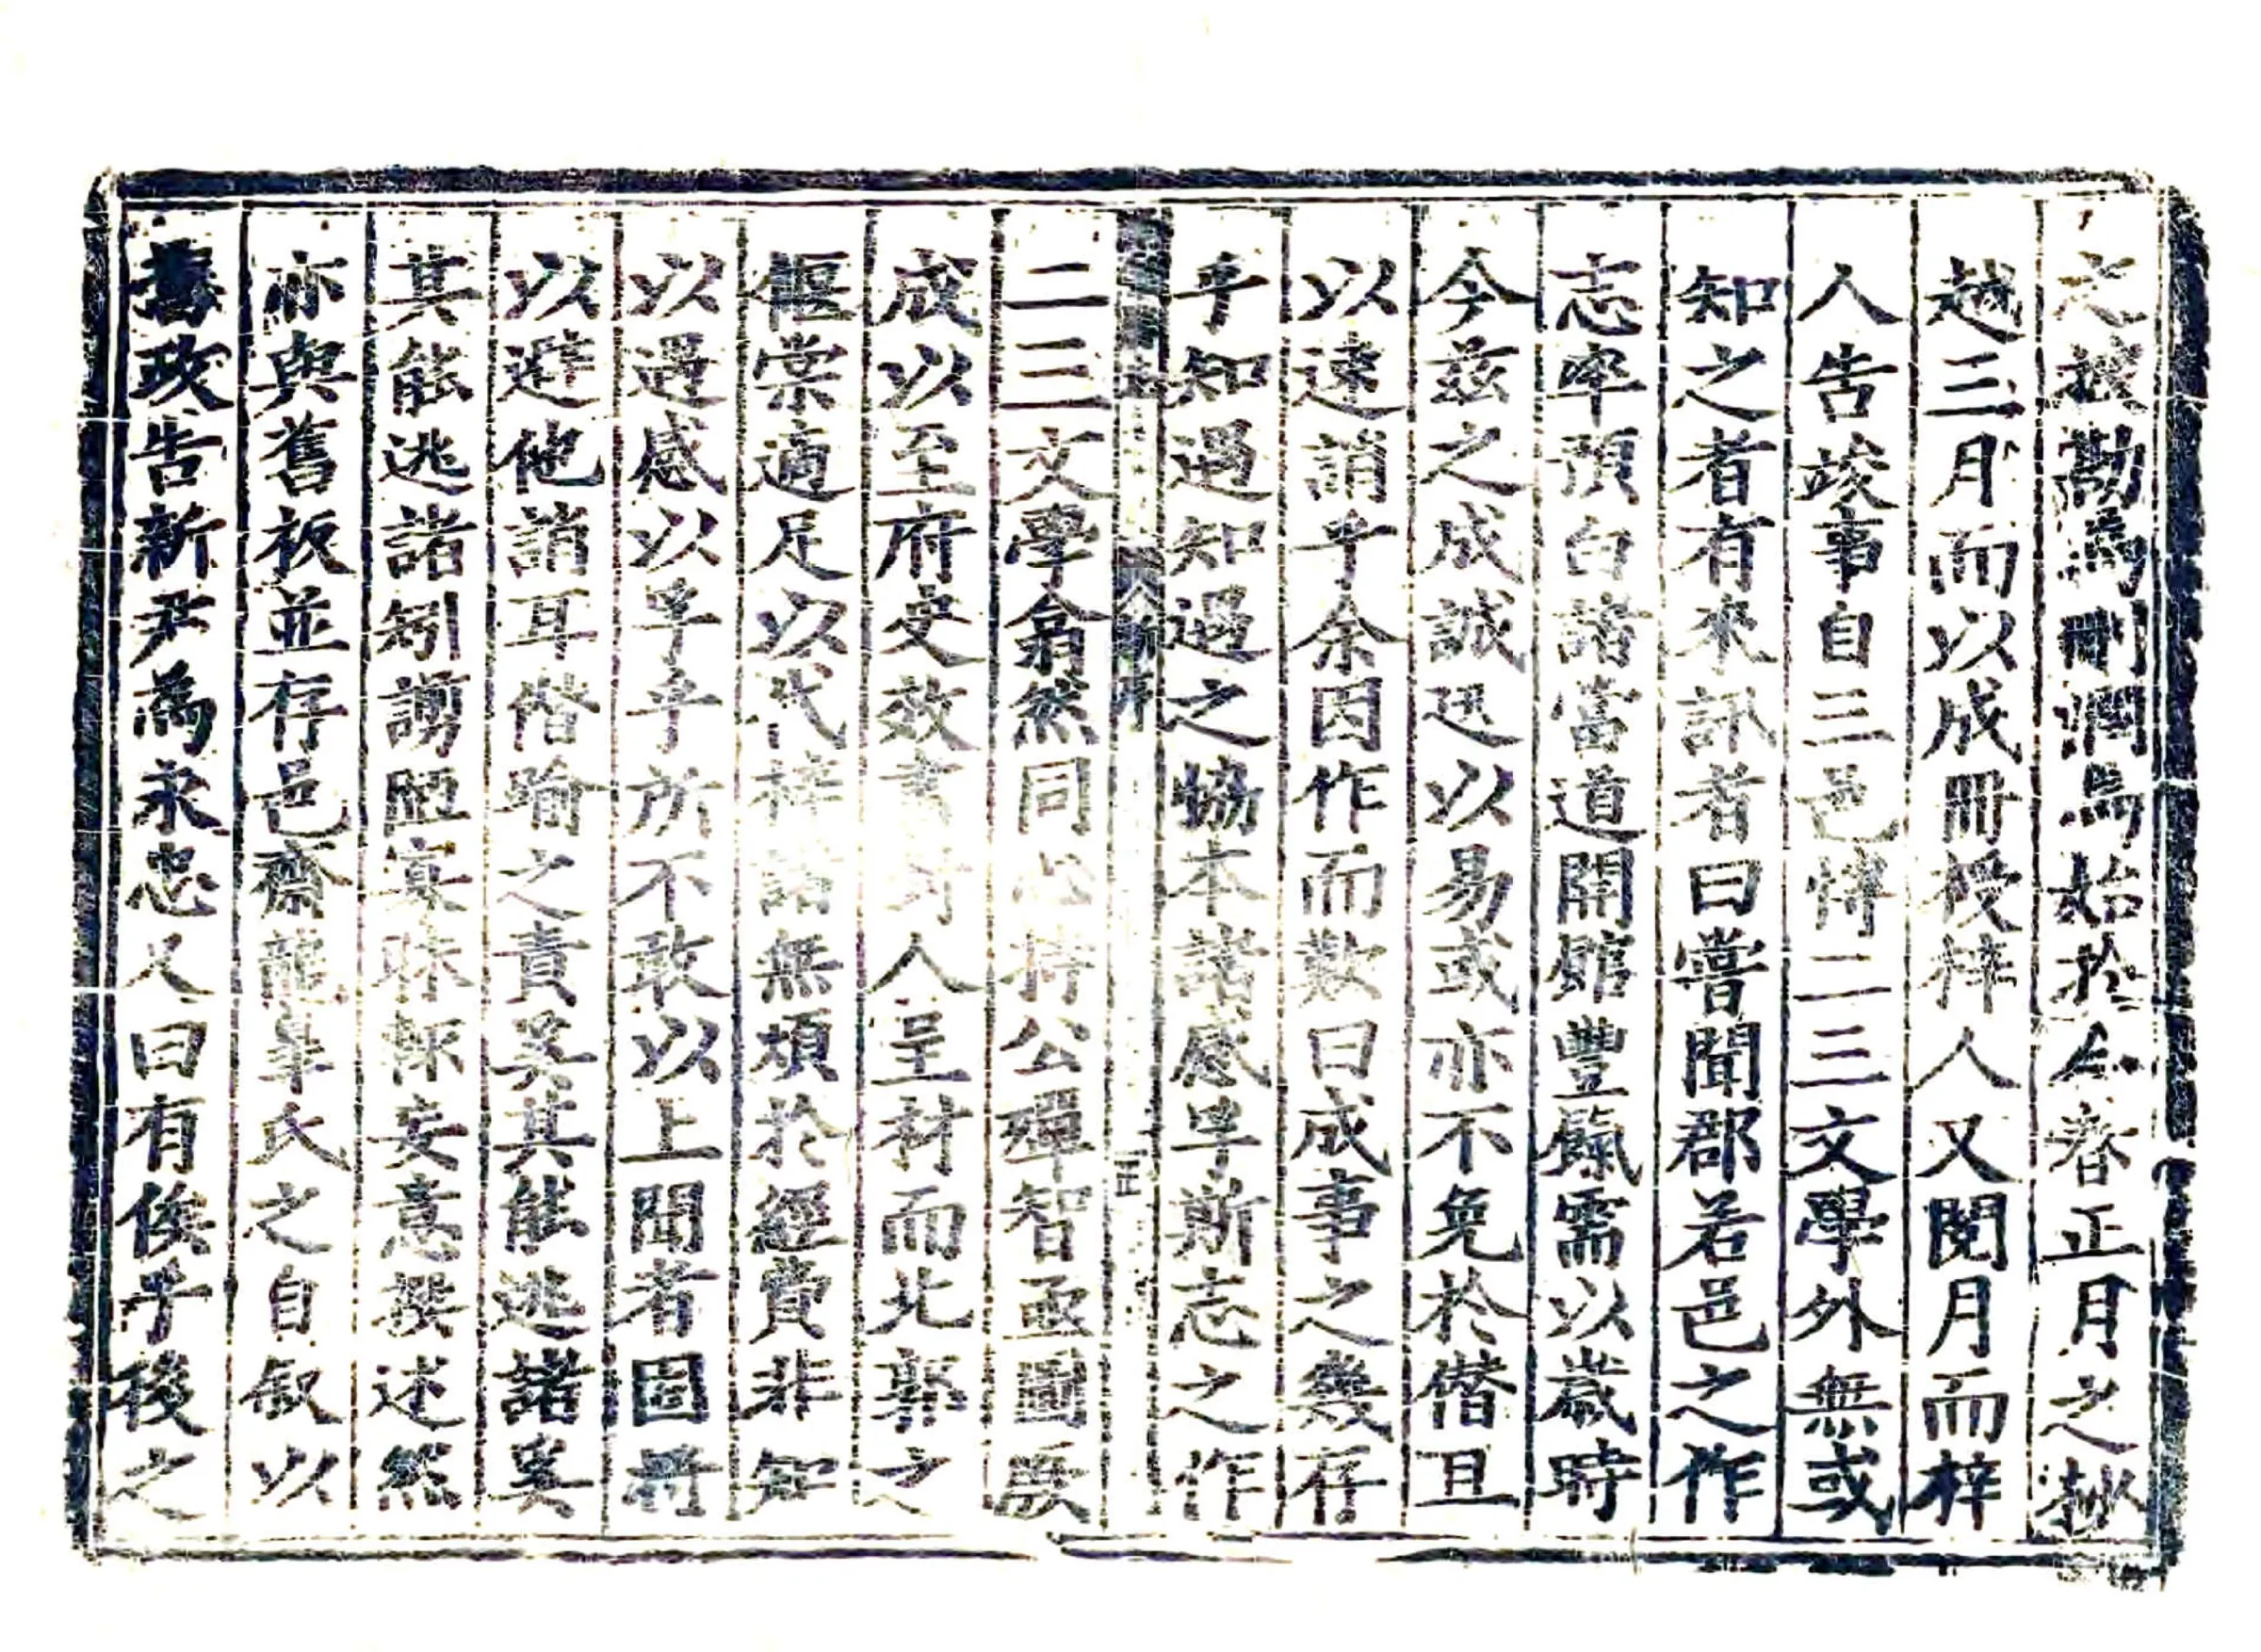 之據勘為刪潤焉始於今春正月之抄
越三月而以成冊授梓人又閱月而梓
人告竣事自三邑博二三文學外無或
知之者有來訊者曰嘗聞郡若邑之作
志率預白諸當道開館豐餼需以歲時
今茲之成誠迅以易或亦不免於僭且
以速誚乎余因作而歎曰成事之幾存
乎知過知過之協本諸感孚斯志之作
二三文學翕然同心持公殫智亟圖厥
成以至府史效書 人呈材而北郭之
偃棠適足以代梓諸無煩於經費非知
以遇感以孚乎所不敢以上聞者固將
以避他誚耳僭踰之責奚其能逃諸奚
其能逃諸矧謭陋寡昧輒妄意撰述然
亦與舊板並存邑齋龍皐氏之自叙以
舊政告新尹為永忠又曰有俟乎後之